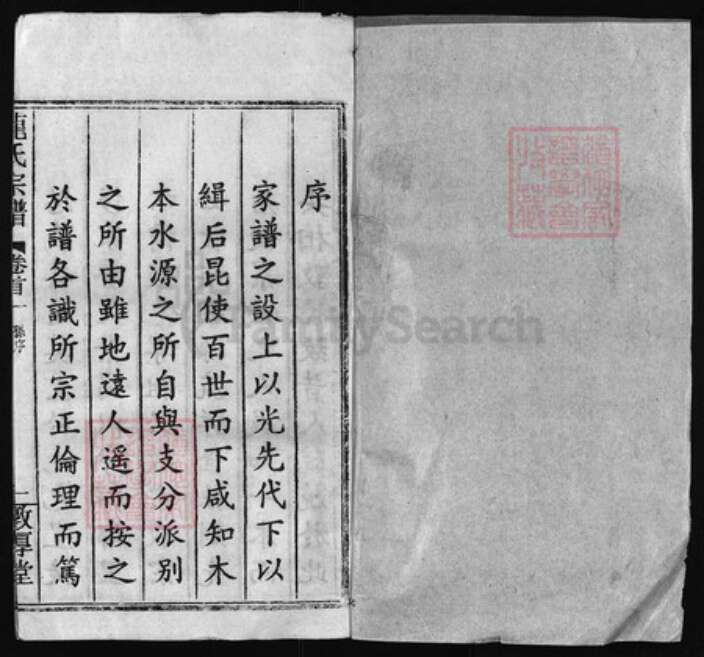 序
家譜之設上以光先代下以
緝后昆使百世而下咸知木
本水源之所自與支分派別
之所由雖地遠人遥而按之
於譜各識所宗正倫理而篤
氏宗譜
卷首
敦厚堂
FamilySearch